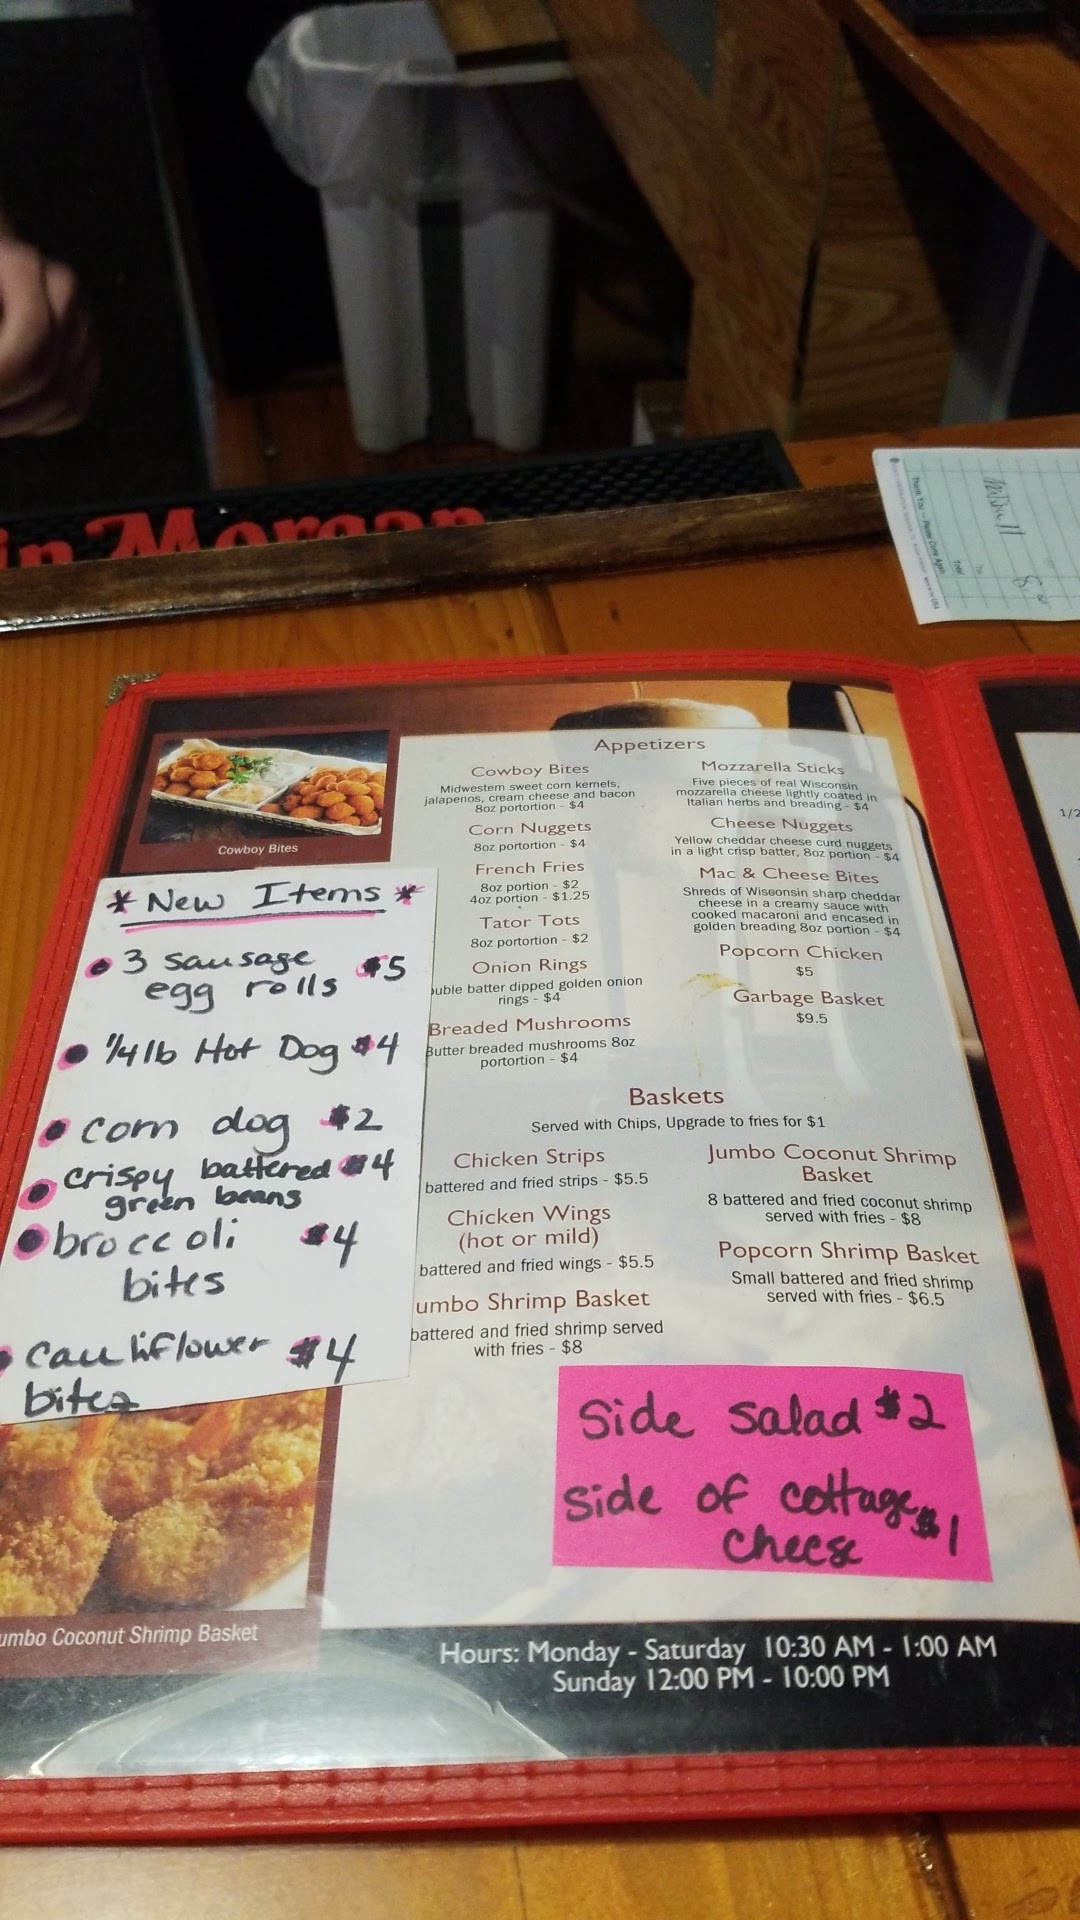 in Morgan
Thank You — Please Come Again
Total
Tax
Cowboy Bites
* New Items *
3 sausage $5
egg rolls
1/4 lb Hot Dog $4
corn dog $2
crispy battered $4
green beans
broccoli $4
bites
cauliflower $4
bites
umbo Coconut Shrimp Basket
Appetizers
Cowboy Bites
Midwestern sweet corn kernels,
jalapenos, cream cheese and bacon
8oz portortion - $4
Corn Nuggets
8oz portortion - $4
French Fries
8oz portion - $2
4oz portion - $1.25
Tator Tots
8oz portortion - $2
Onion Rings
uble batter dipped golden onion
rings - $4
Breaded Mushrooms
Butter breaded mushrooms 8oz
portortion - $4
Mozzarella Sticks
Five pieces of real Wisconsin
mozzarella cheese lightly coated in
Italian herbs and breading - $4
Cheese Nuggets
Yellow cheddar cheese curd nuggets
in a light crisp batter, 8oz portion - $4
Mac & Cheese Bites
Shreds of Wisconsin sharp cheddar
cheese in a creamy sauce with
cooked macaroni and encased in
golden breading 8oz portion - $4
Popcorn Chicken
$5
Garbage Basket
$9.5
Baskets
Served with Chips, Upgrade to fries for $1
Chicken Strips
battered and fried strips - $5.5
Chicken Wings
(hot or mild)
battered and fried wings - $5.5
umbo Shrimp Basket
battered and fried shrimp served
with fries - $8
Jumbo Coconut Shrimp
Basket
8 battered and fried coconut shrimp
served with fries - $8
Popcorn Shrimp Basket
Small battered and fried shrimp
served with fries - $6.5
Side salad $2
side of cottage $1
cheese
Hours: Monday - Saturday 10:30 AM - 1:00 AM
Sunday 12:00 PM - 10:00 PM
1/2